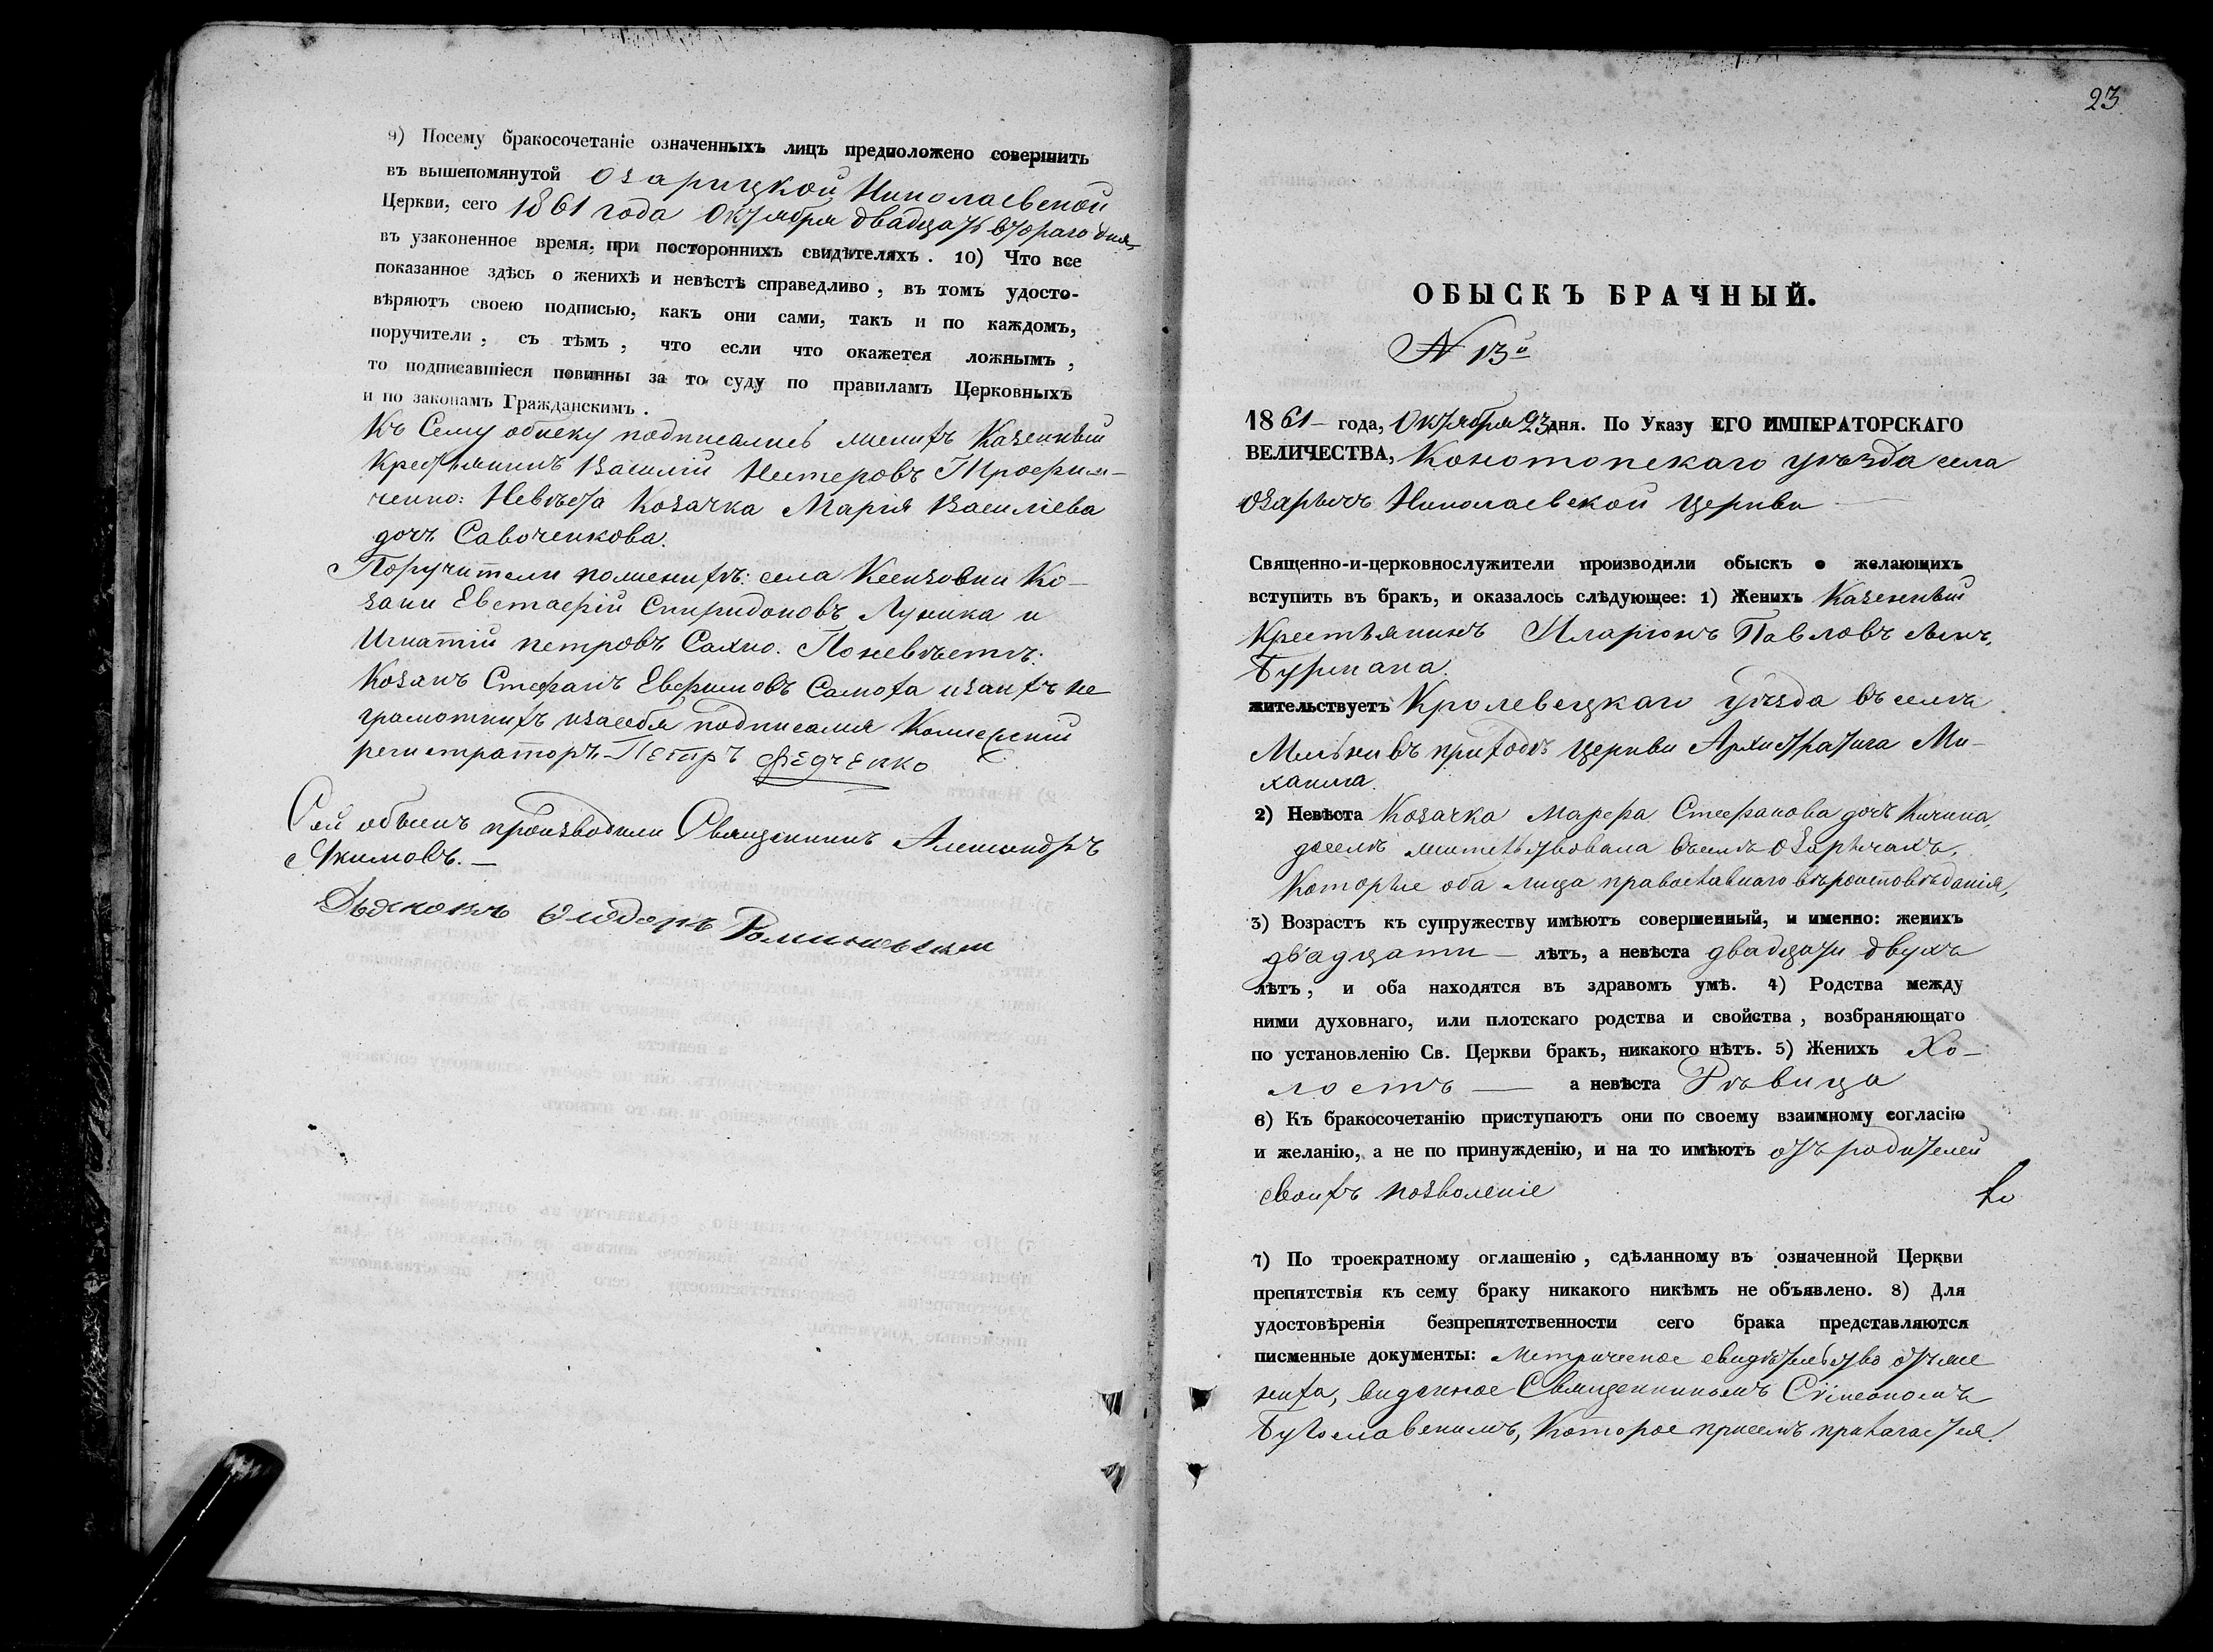 9) Посему бракосочетаніе означенныхъ лицъ предположено совершить
въ вышепомянутой Озарицкой Николаевской
Церкви, сего 1861 года Октября двадцать втораго дня
въ узаконенное время, при постороннихъ свидѣтеляхъ. 10) Что все
показанное здѣсь о женихѣ и невѣстѣ справедливо, въ томъ удосто-
вѣряютъ своею подписью, какъ они сами, такъ и по каждомъ,
поручители, съ тѣмъ, что если что окажется ложнымъ,
то подписавшіеся повинны за то суду по правиламъ Церковныхъ
и по законамъ Гражданскимъ.
Къ Сему обыску подписались женихъ Казенный
Крестьянинъ Василій Нестеровъ Трофим-
ченко: Невѣста Козачка Марія Василіева
дочь Савоченкова.
Поручители по женихѣ: села Ксензовки Ко-
заки Евстафій Спиридоновъ Лузика и
Игнатій петровъ Сахно. По невѣстѣ:
Козакъ Стефанъ Евфимовъ Самоха и за нихъ не
грамотныхъ и за себя подписался Колежскій
регистраторъ Петръ Федченко
Сей обыскъ производили Священникъ Александръ
Якимовъ.
Дьяконъ
23
ОБЫСКЪ БРАЧНЫЙ.
N 13й
1861 года, Октября 23 дня. По Указу ЕГО ИМПЕРАТОРСКАГО
ВЕЛИЧЕСТВА, Конотопскаго уѣзда села
Озаричъ Николаевской Церкви
Священно-и-церковнослужители производили обыскъ о желающихъ
вступить въ бракъ, и оказалось слѣдующее: 1) Женихъ Казенный
Крестьянинъ Иларіонъ Павловъ сынъ,
Бурмака.
жительствуетъ Кролевецкаго уѣзда въ селѣ
въ приходѣ Церкви Архистратига Ми-
хаила.
2) Невѣста Козачка Марфа Стефанова дочь Кичика,
доселѣ жительствовала въ селѣ Озаричахъ,
Которые оба лица православнаго вѣроисповѣданія,
3) Возрастъ къ супружеству имѣютъ совершенный, и именно: женихъ
двадцати лѣтъ, а невѣста двадцати двухъ
лѣтъ, и оба находятся въ здравомъ умѣ. 4) Родства между
ними духовнаго, или плотскаго родства и свойства, возбраняющаго
по установленію Св. Церкви бракъ, никакого нѣтъ. 5) Женихъ Хо-
лостъ а невѣста Дѣвица
6) Къ бракосочетанію приступаютъ они по своему взаимному согласію
и желанію, а не по принужденію, и на то имѣютъ отъ родителей
своихъ позволеніе
7) По троекратному оглашенію, сдѣланному въ означенной Церкви
препятствія къ сему браку никакого никѣмъ не объявлено. 8) Для
удостовѣренія безпрепятственности сего брака представляются
писменные документы: Метрическое свидѣтельство о же
ниха, виденное Священникомъ Сѵмеономъ
Которое присемъ прилагается.